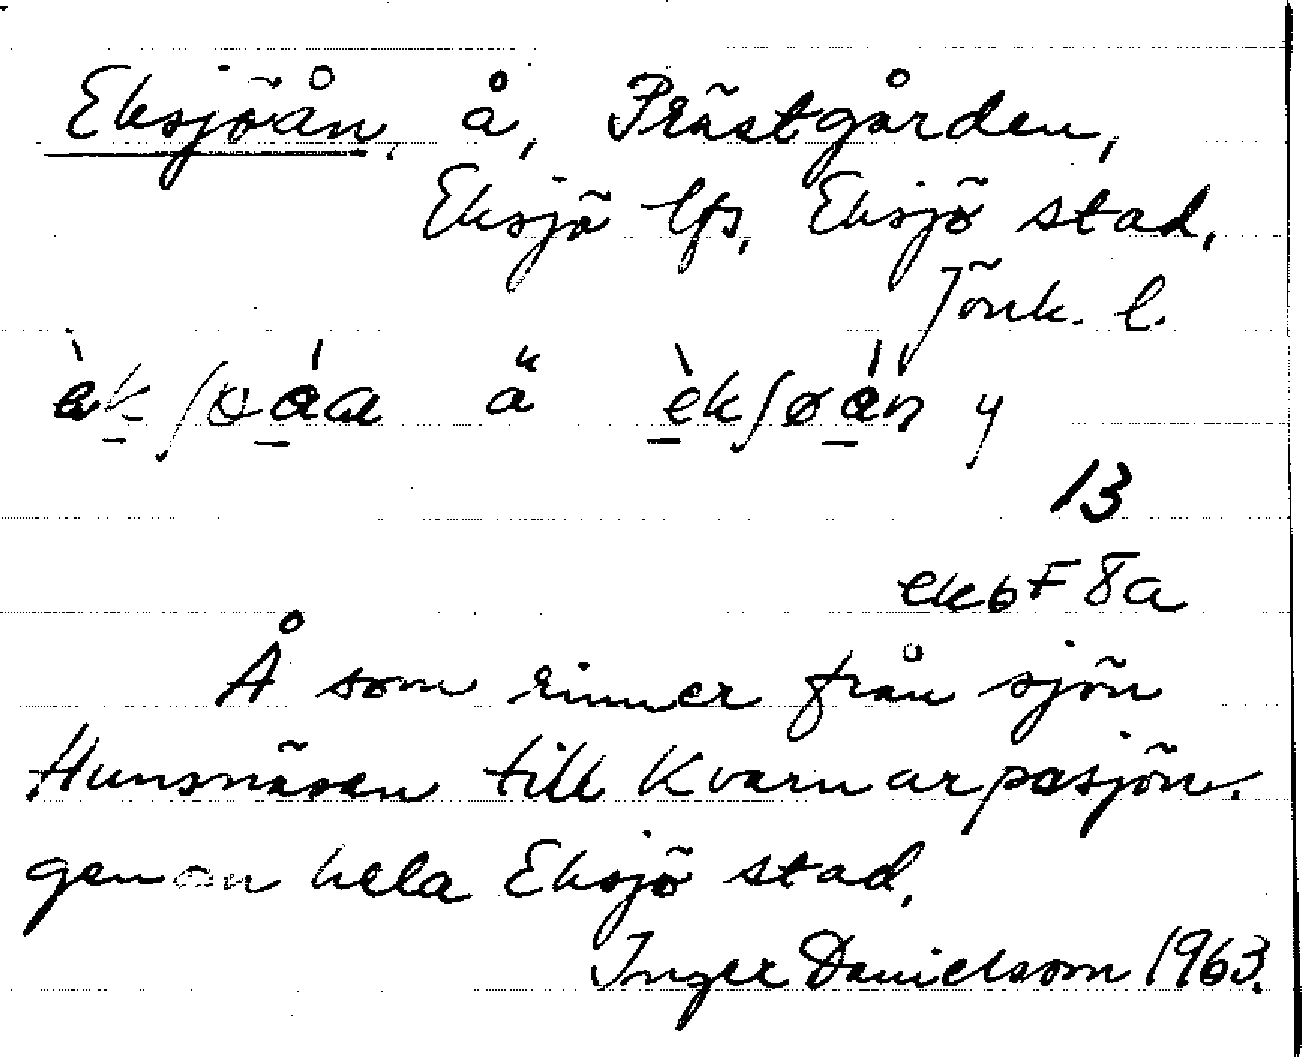 Eksjöån, å, Prästgården,
Eksjö lfs, Eksjö stad,
Jönk. l.
èkʃøáa ä èkʃøán y
13
ekb F 8a
Å som rinner från sjön
Hunsnäsen till Kvarnarpasjön.
genom hela Eksjö stad.
Inger Danielsson 1963.